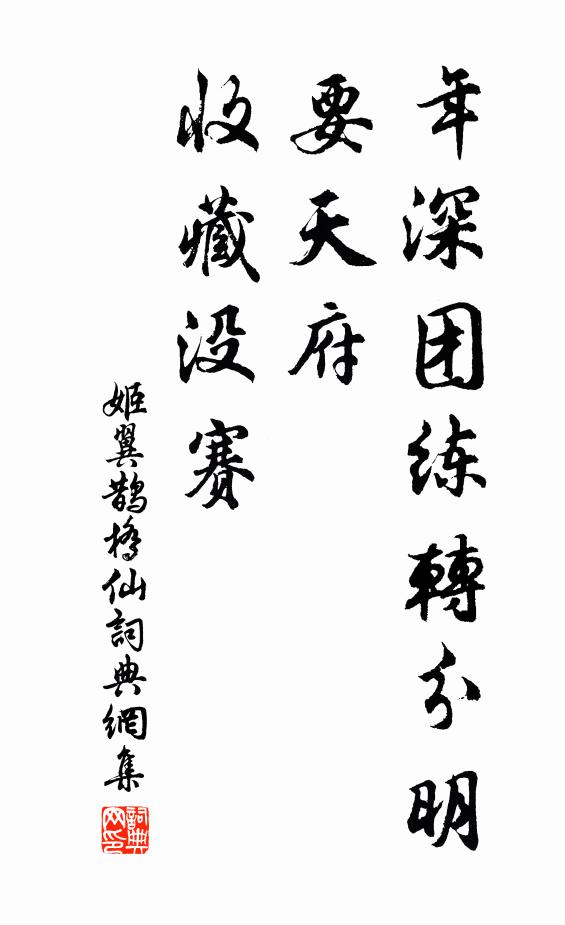 年深团练轉分明
要天府
收藏没赛
姬翼鹊橋仙詞典網集
詞典网印